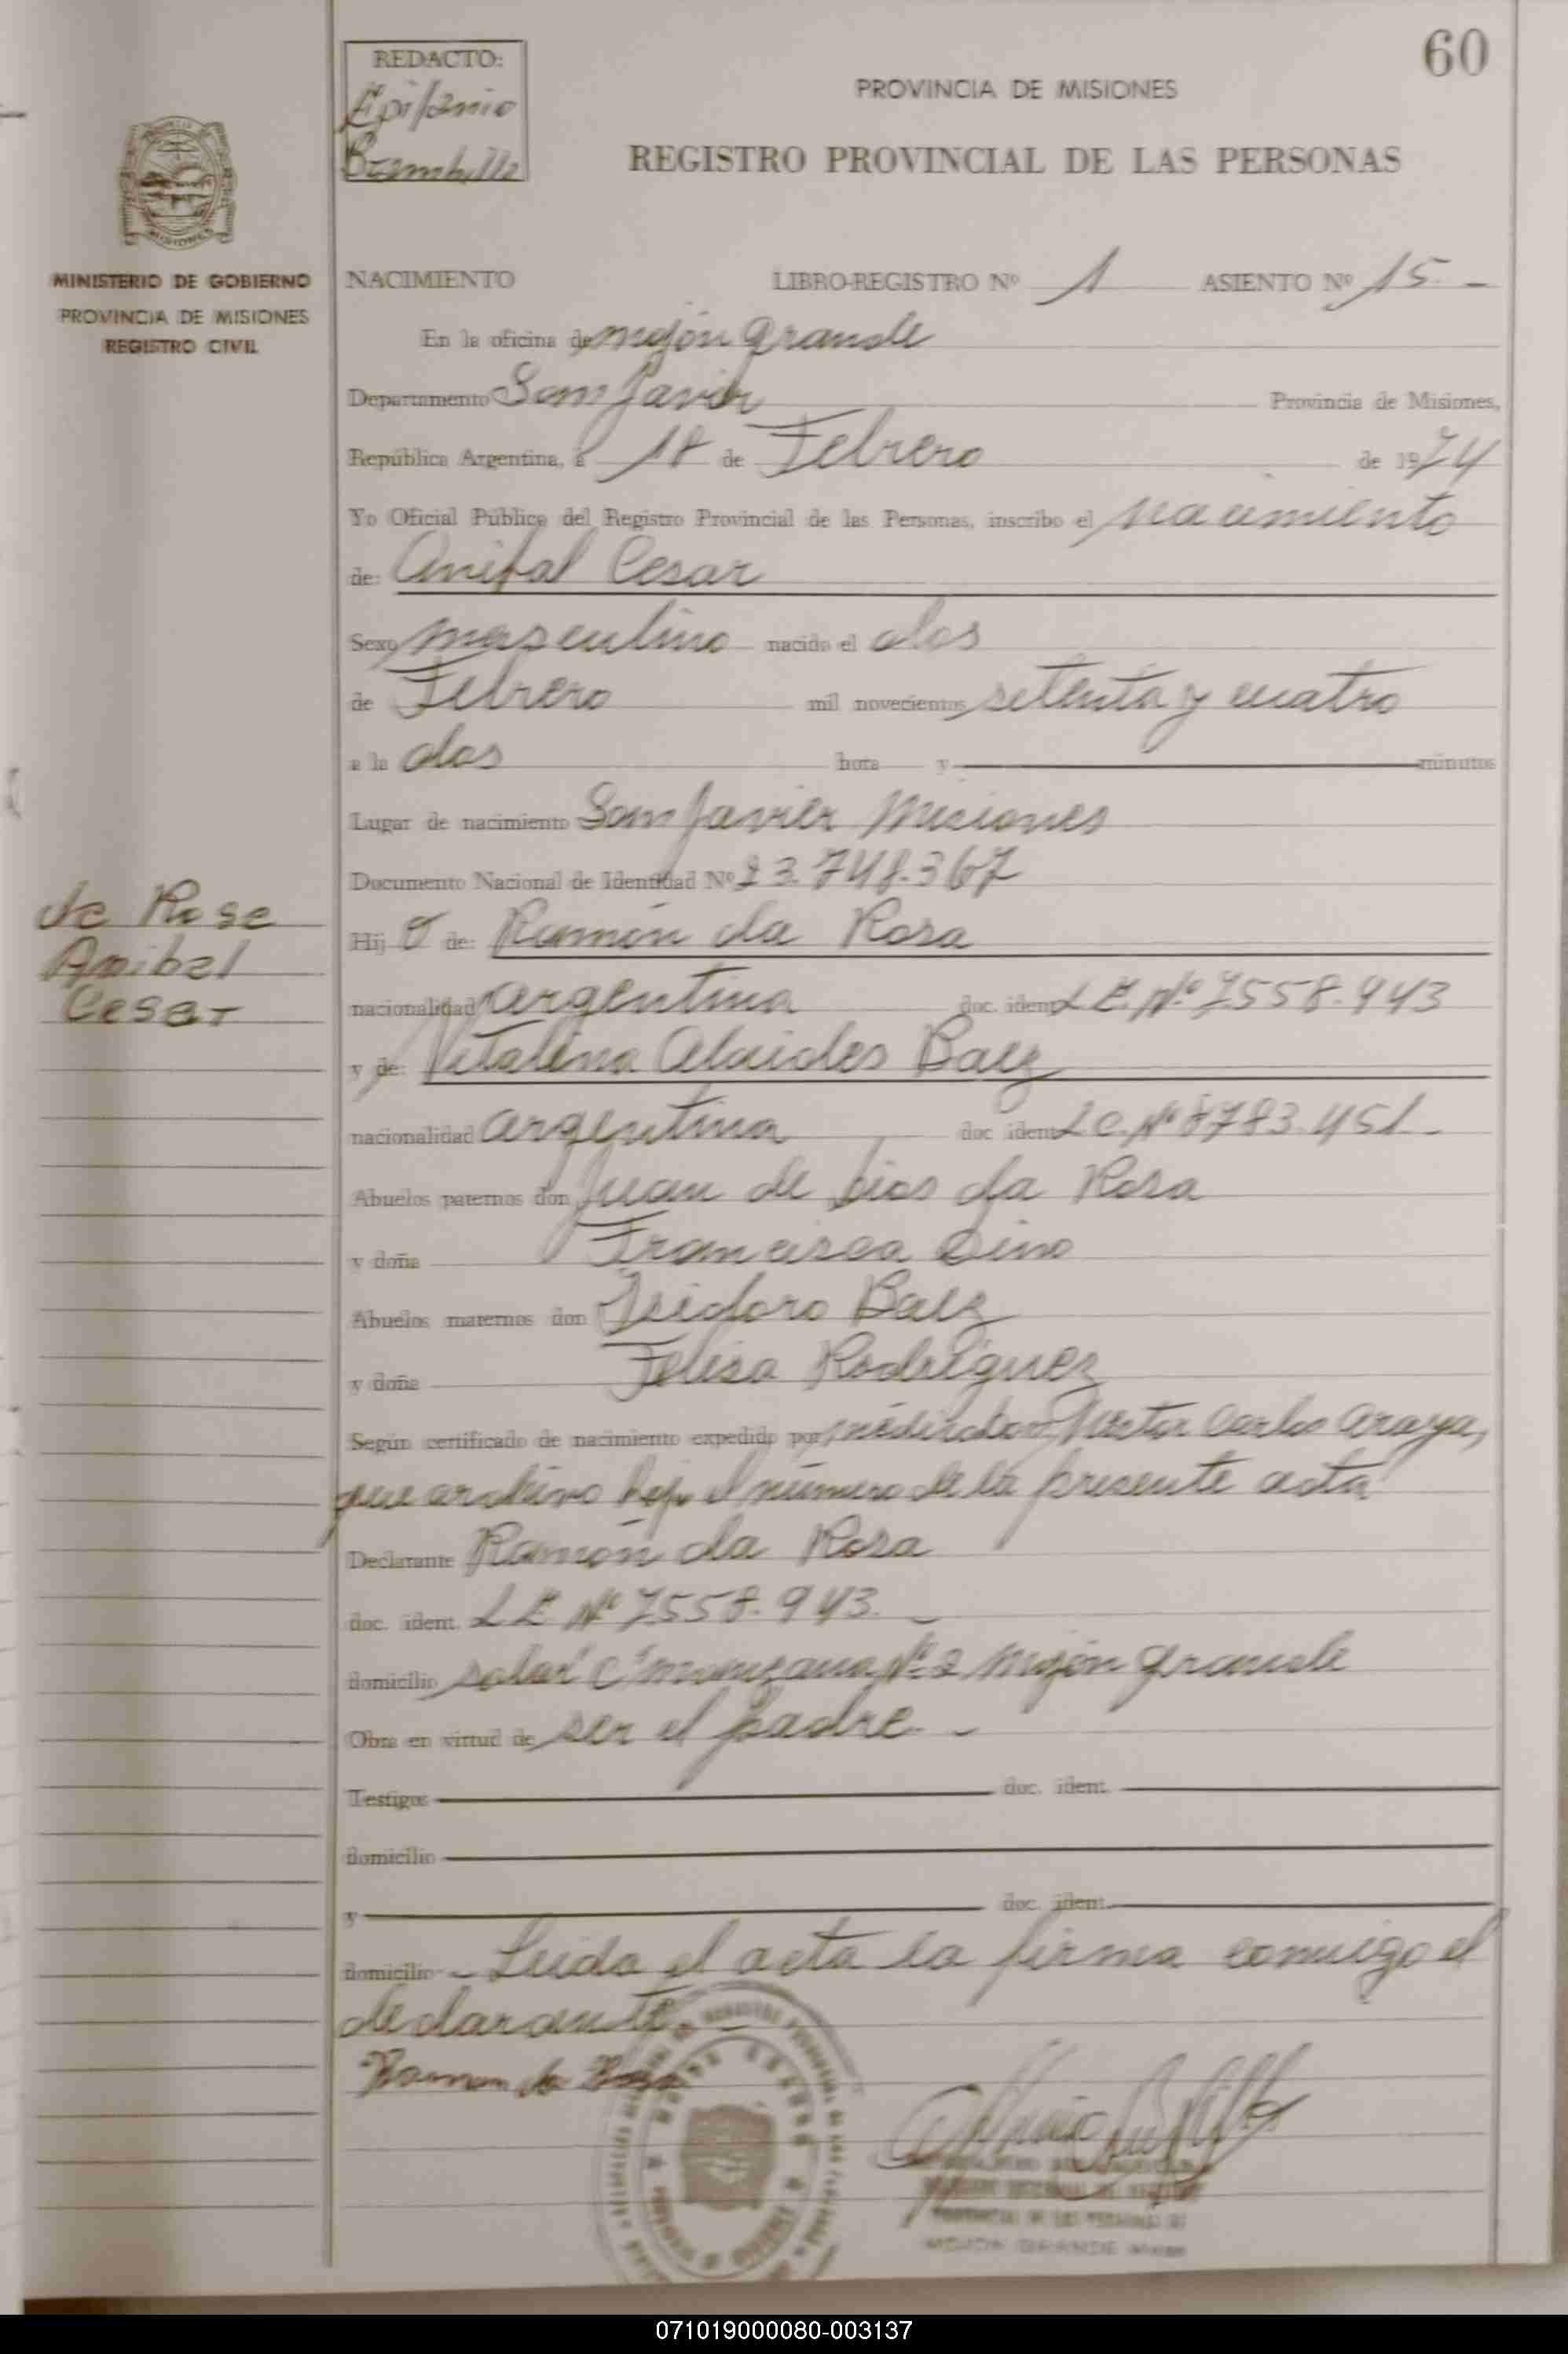 60
REDACTO:
Epifanio
Brambilla
PROVINCIA DE MISIONES
REGISTRO PROVINCIAL DE LAS PERSONAS
MISIONES
MINISTERIO DE GOBIERNO
PROVINCIA DE MISIONES
REGISTRO CIVIL
NACIMIENTO LIBRO-REGISTRO Nº 1 ASIENTO Nº 15.-
En la oficina de mojón grande
Departamento San Javier Provincia de Misiones,
República Argentina, a 18 de Febrero de 1974
Yo Oficial Público del Registro Provincial de las Personas, inscribo el nacimiento
de: Anibal Cesar
Sexo masculino nacido el dos
de Febrero mil novecientos setenta y cuatro
a la dos hora y minutos
Lugar de nacimiento San Javier Misiones
Documento Nacional de Identidad Nº 23.748.367
da Rosa
Anibal
Cesar
Hij o de: Ramón da Rosa
nacionalidad argentina doc. ident. L E. Nº 7.558.943
y de: Vitalina Alaides Baez
nacionalidad argentina doc ident. L C. Nº 8783.451.-
Abuelos paternos don Juan de Dios da Rosa
y doña Francisca Dino
Abuelos maternos don Isidoro Baez
y doña Felisa Rodriguez
Según certificado de nacimiento expedido por Carlos Araya,
que archivo bajo el número de la presente acta
Declarante Ramón da Rosa
doc. ident. L E Nº 7.558.943.-
domicilio solar C manzana Nº 2 mojón grande
Obra en virtud de ser el padre.-
Testigos doc. ident.
domicilio
y doc. ident.
domicilio - Leida el acta la firma conmigo el
declarante.-
Ramon da Rosa
MOJON GRANDE
071019000080-003137